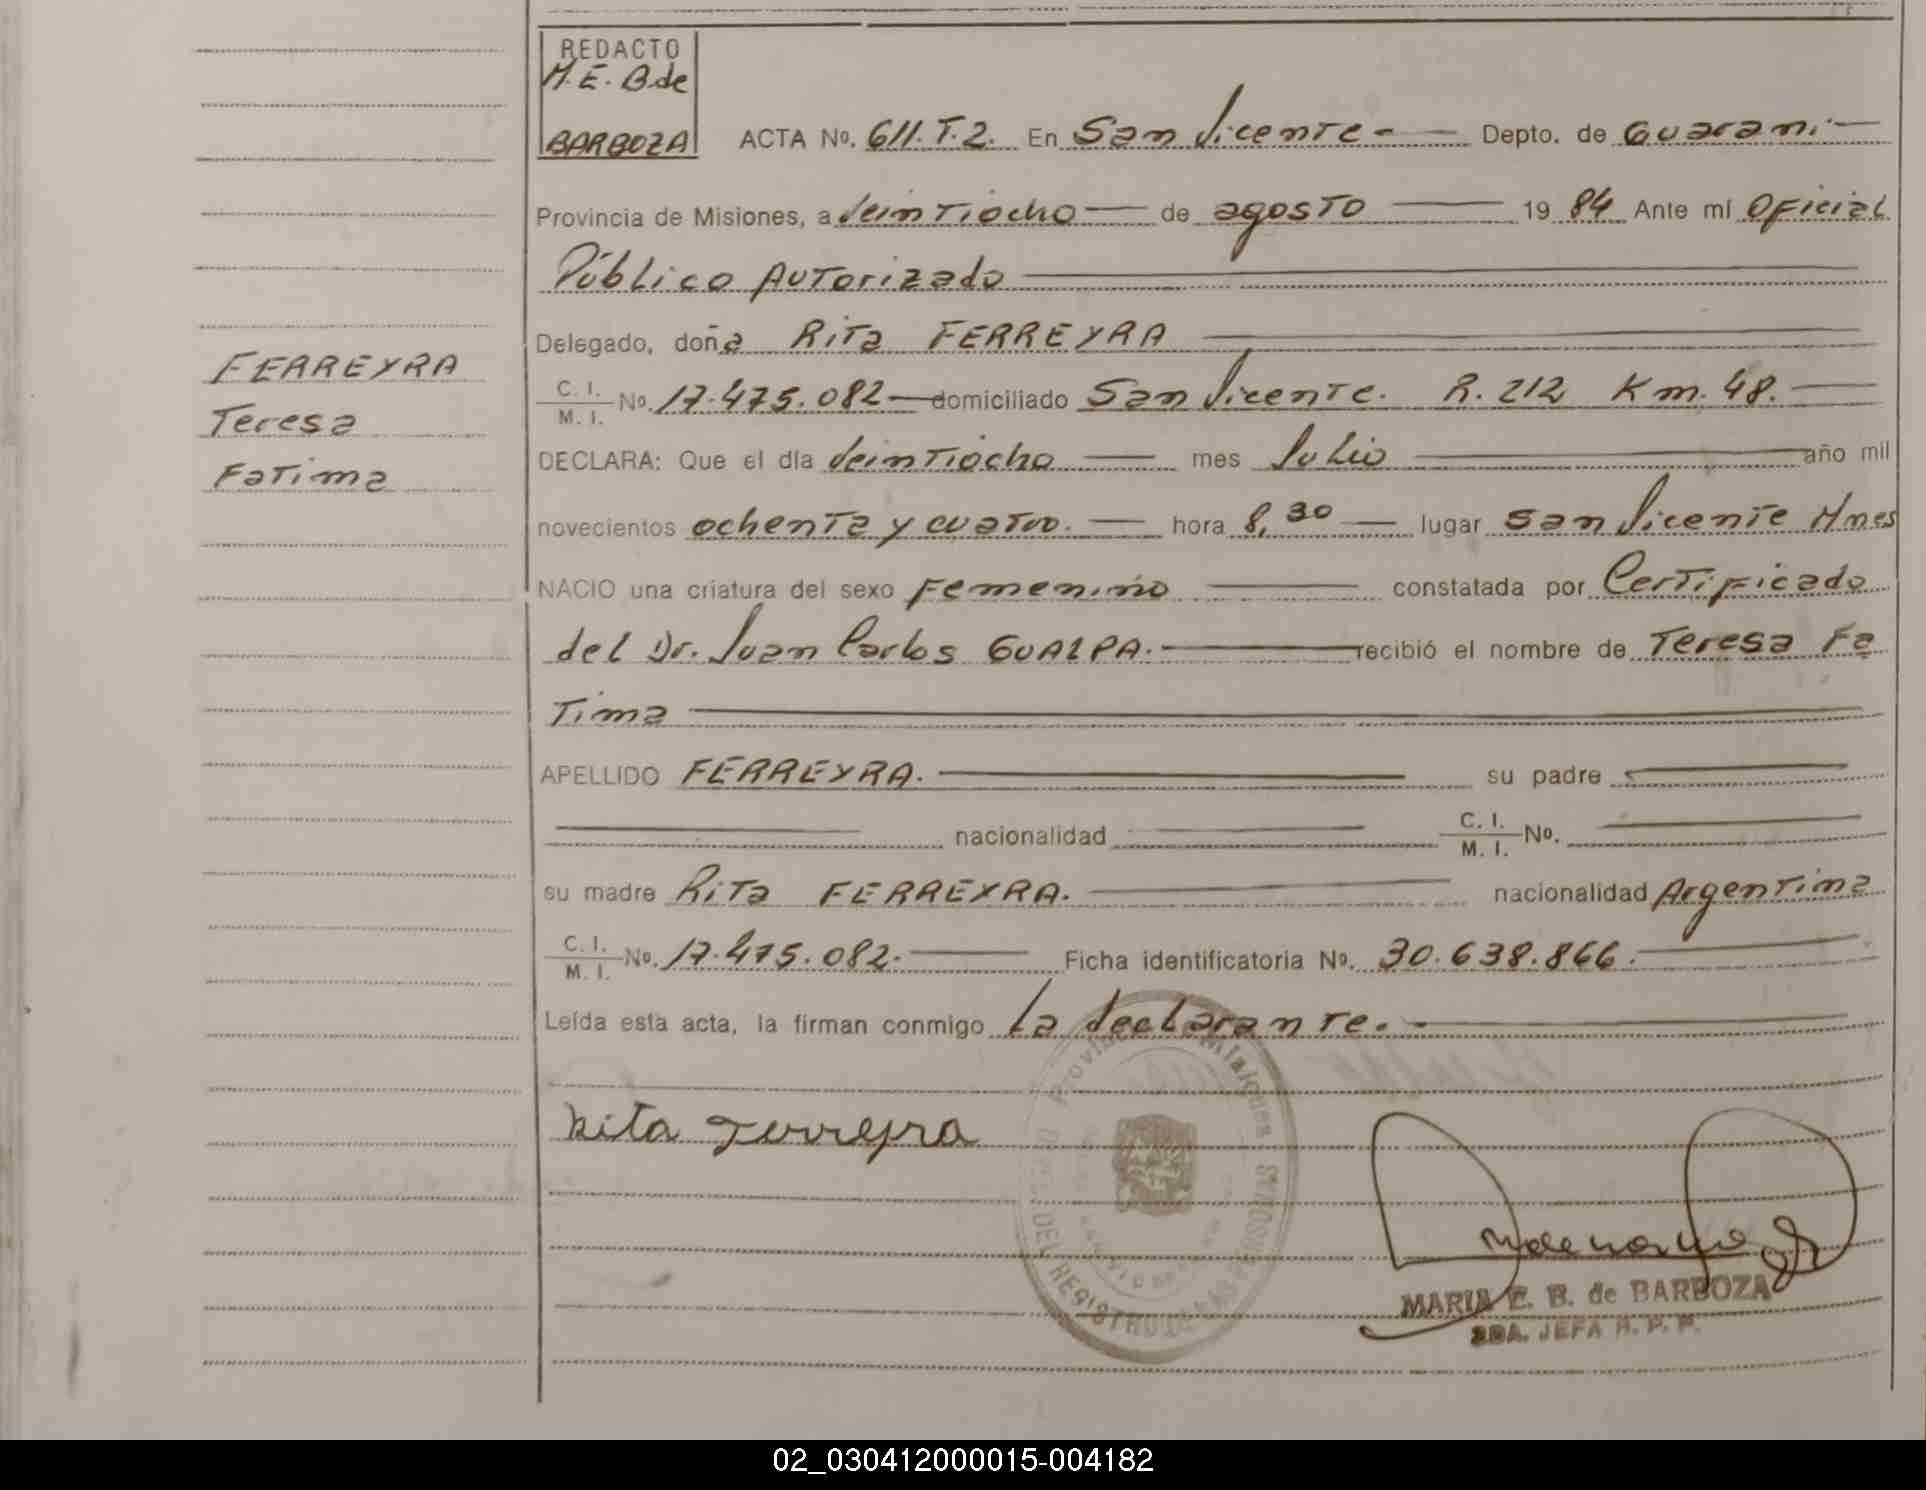 REDACTO
M.E. B de
BARBOZA
ACTA No. 611.T.2. En San Vicente.- Depto. de Guarani
Provincia de Misiones, a veintiocho de agosto 19 84 Ante mí Oficial
Público Autorizado
Delegado, doña Rita FERREYRA
C. I.
M. I. No. 17.475.082 domiciliado San Vicente. R. 212 Km. 48.
DECLARA: Que el día veintiocho mes Julio año mil
novecientos ochenta y cuatro. hora 8,30 lugar San Vicente Mnes
NACIO una criatura del sexo Femenino constatada por Certificado
del Dr. Juan Carlos GUALPA. recibió el nombre de Teresa Fa
Tima
APELLIDO FERREYRA. su padre
nacionalidad C. I.
M. I. No.
su madre Rita FERREYRA. nacionalidad Argentina
C. I.
M. I. No. 17.475.082. Ficha identificatoria No. 30.638.866.
Leída esta acta, la firman conmigo La declarante.
Rita Ferreyra
MARIA E. B. de BARBOZA
2DA. JEFA R. P. P.
FERREYRA
Teresa
Fatima
02_030412000015-004182